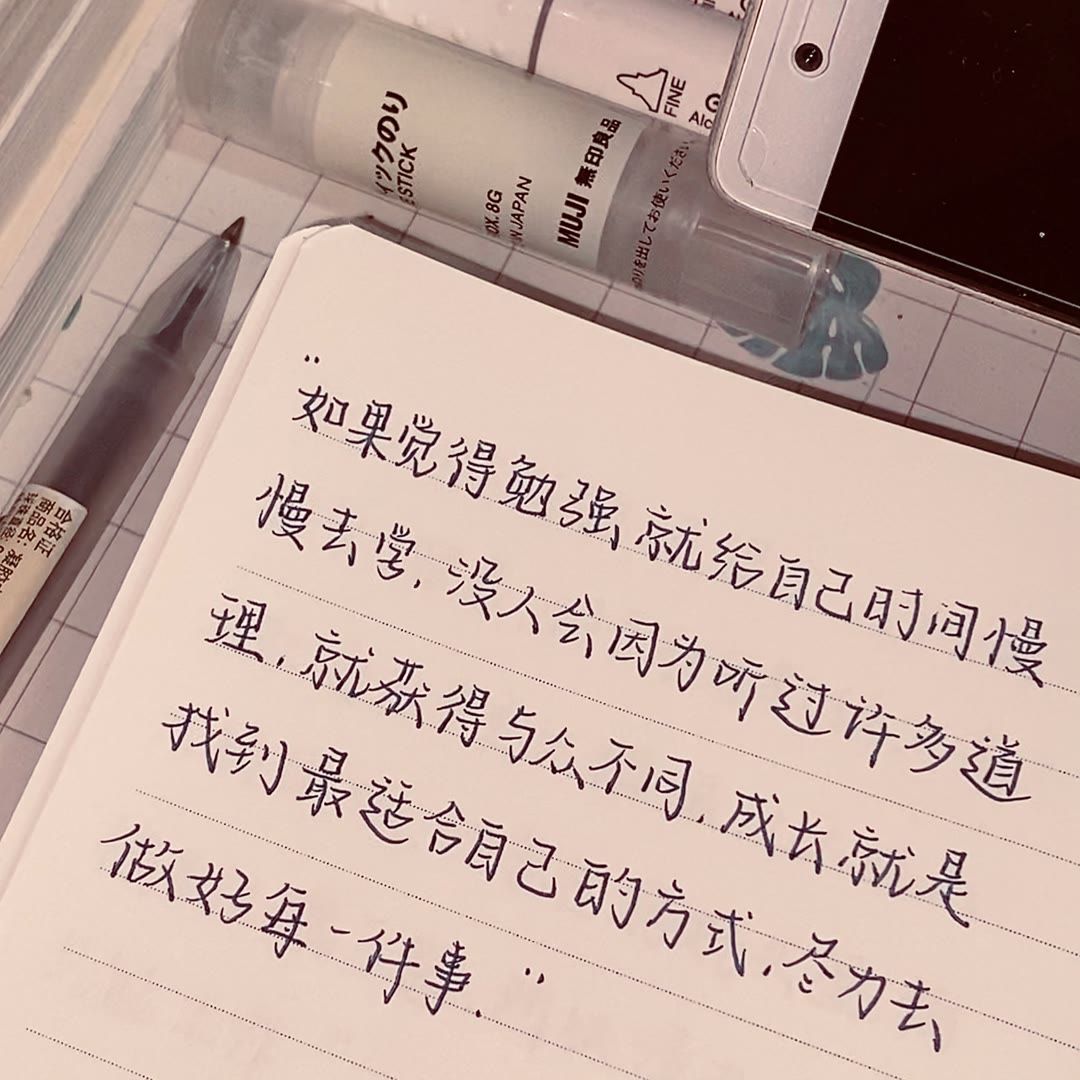 FINE
Alc
イックのり
E STICK
OX. 8G
IN JAPAN
MUJI 無印良品
のりを出してお使いください
"
如果觉得勉强,就给自己时间慢
慢去学,没人会因为听过许多道
理,就获得与众不同,成长就是
找到最适合自己的方式,尽力去
做好每一件事."